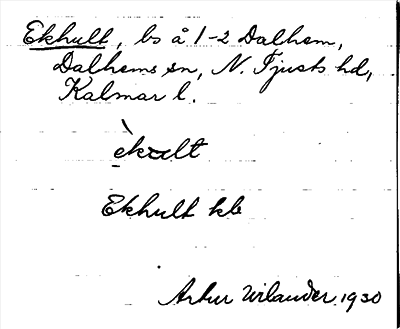 Ekhult, bs å 1-2 Dalhem,
Dalhems sn, N. Tjusts hd,
Kalmar l.
èkult
Ekhult kb
Artur Wilander 1930